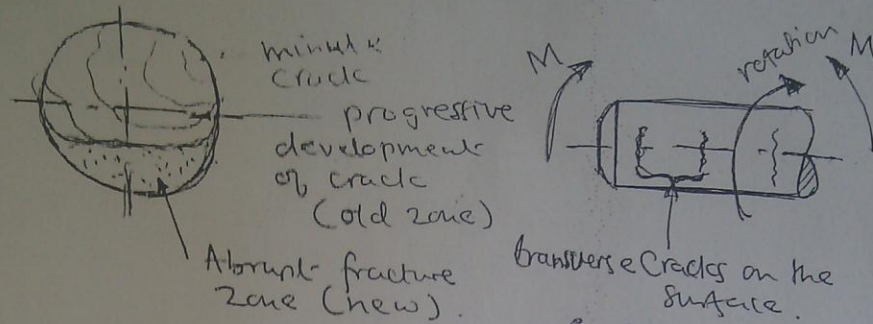 minute
crack
progressive
development
of crack
(old zone)
Abrupt fracture
zone (new).
M
rotation
M
transverse cracks on the
surface.